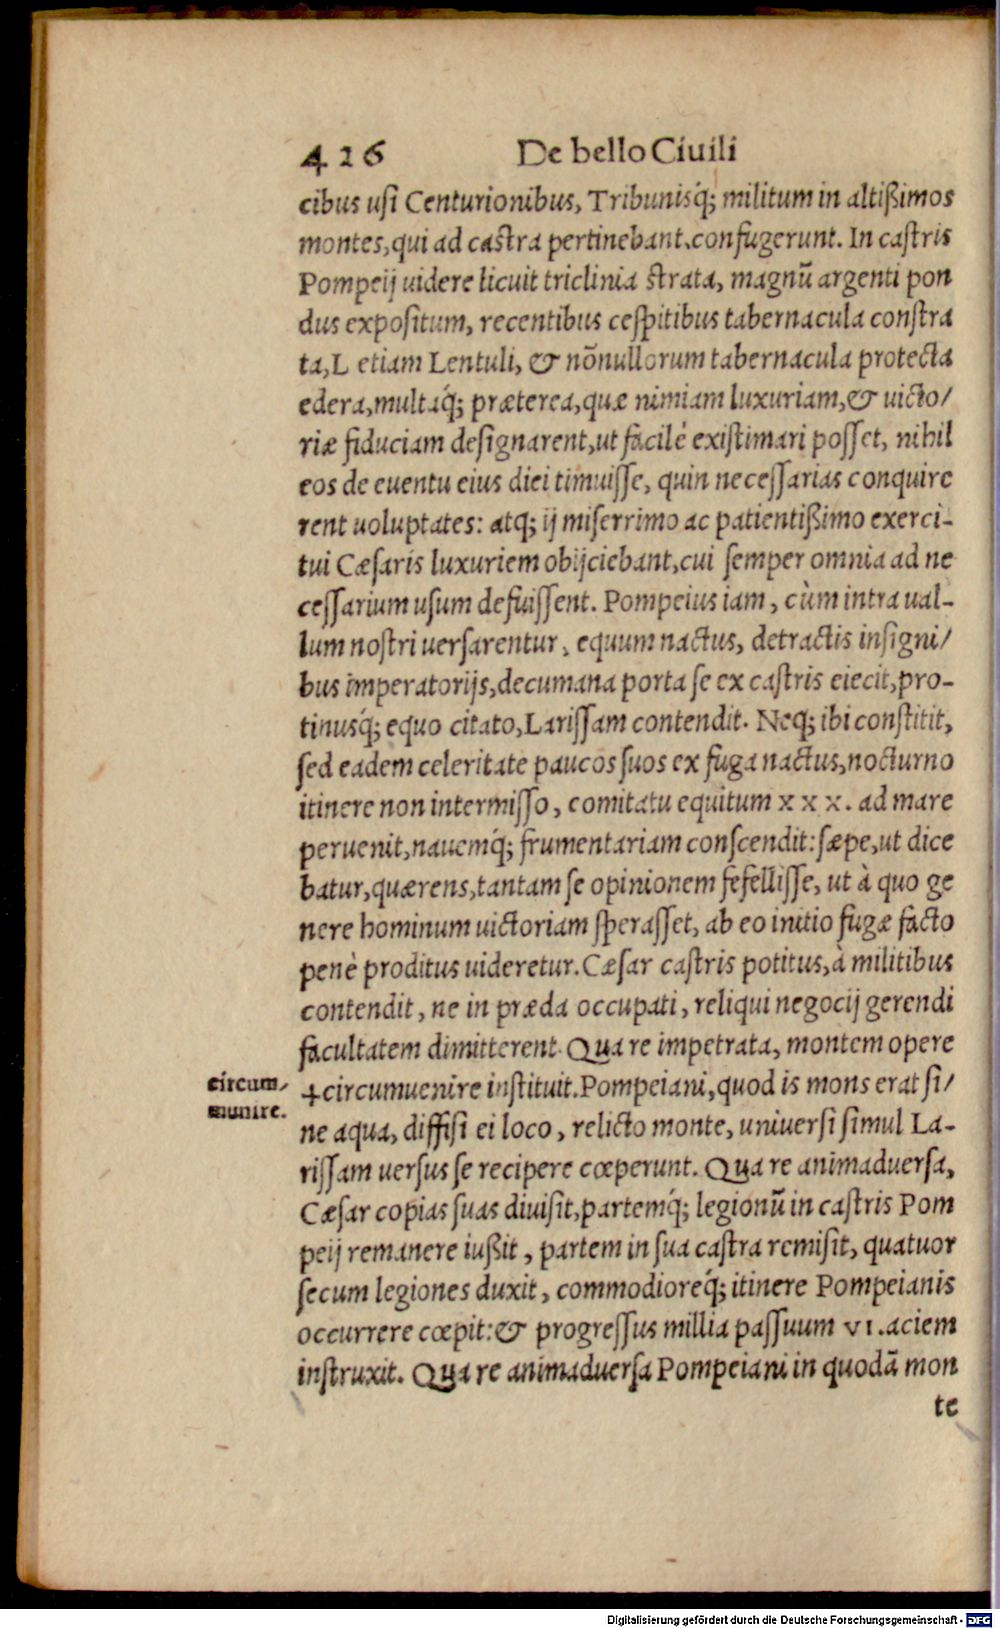 426 De bello Ciuili
cibus usi Centurionibus, Tribunisq́; militum in altißimos
montes, qui ad castra pertinebant, confugerunt. In castris
Pompeij uidere licuit triclinia strata, magnū argenti pon
dus expositum, recentibus cespitibus tabernacula constra
ta, L etiam Lentuli, & nōnullorum tabernacula protecta
edera, multaq́; præterea, quæ nimiam luxuriam, & uicto/
riæ fiduciam designarent, ut facilé existimari posset, nihil
eos de euentu eius diei timuisse, quin necessarias conquire
rent uoluptates: atq; ij miserrimo ac patientißimo exerci-
tui Cæsaris luxuriem obijciebant, cui semper omnia ad ne
cessarium usum defuissent. Pompeius iam, cùm intra ual-
lum nostri uersarentur, equum nactus, detractis insigni/
bus imperatorijs, decumana porta se ex castris eiecit, pro-
tinusq́; equo citato, Larissam contendit. Neq; ibi constitit,
sed eadem celeritate paucos suos ex fuga nactus, nocturno
itinere non intermisso, comitatu equitum x x x. ad mare
peruenit, nauemq́; frumentariam conscendit: sæpe, ut dice
batur, quærens, tantam se opinionem fefellisse, ut à quo ge
nere hominum uictoriam sperasset, ab eo initio fugæ facto
penè proditus uideretur. Cæsar castris potitus, à militibus
contendit, ne in præda occupati, reliqui negocij gerendi
facultatem dimitterent. Qua re impetrata, montem opere
circum/
munire.
+circumuenire instituit. Pompeiani, quod is mons erat si/
ne aqua, diffisi ei loco, relicto monte, uniuersi simul La-
rissam uersus se recipere cœperunt. Qua re animaduersa,
Cæsar copias suas diuisit, partemq́; legionū in castris Pom
peij remanere iußit, partem in sua castra remisit, quatuor
secum legiones duxit, commodioreq́; itinere Pompeianis
occurrere cœpit: & progressus millia passuum VI. aciem
instruxit. Qua re animaduersa Pompeiani in quodā mon
te
Digitalisierung gefördert durch die Deutsche Forschungsgemeinschaft - DFG